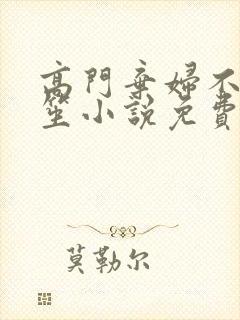 高門棄婦不
笙小說免費
莫勒尔